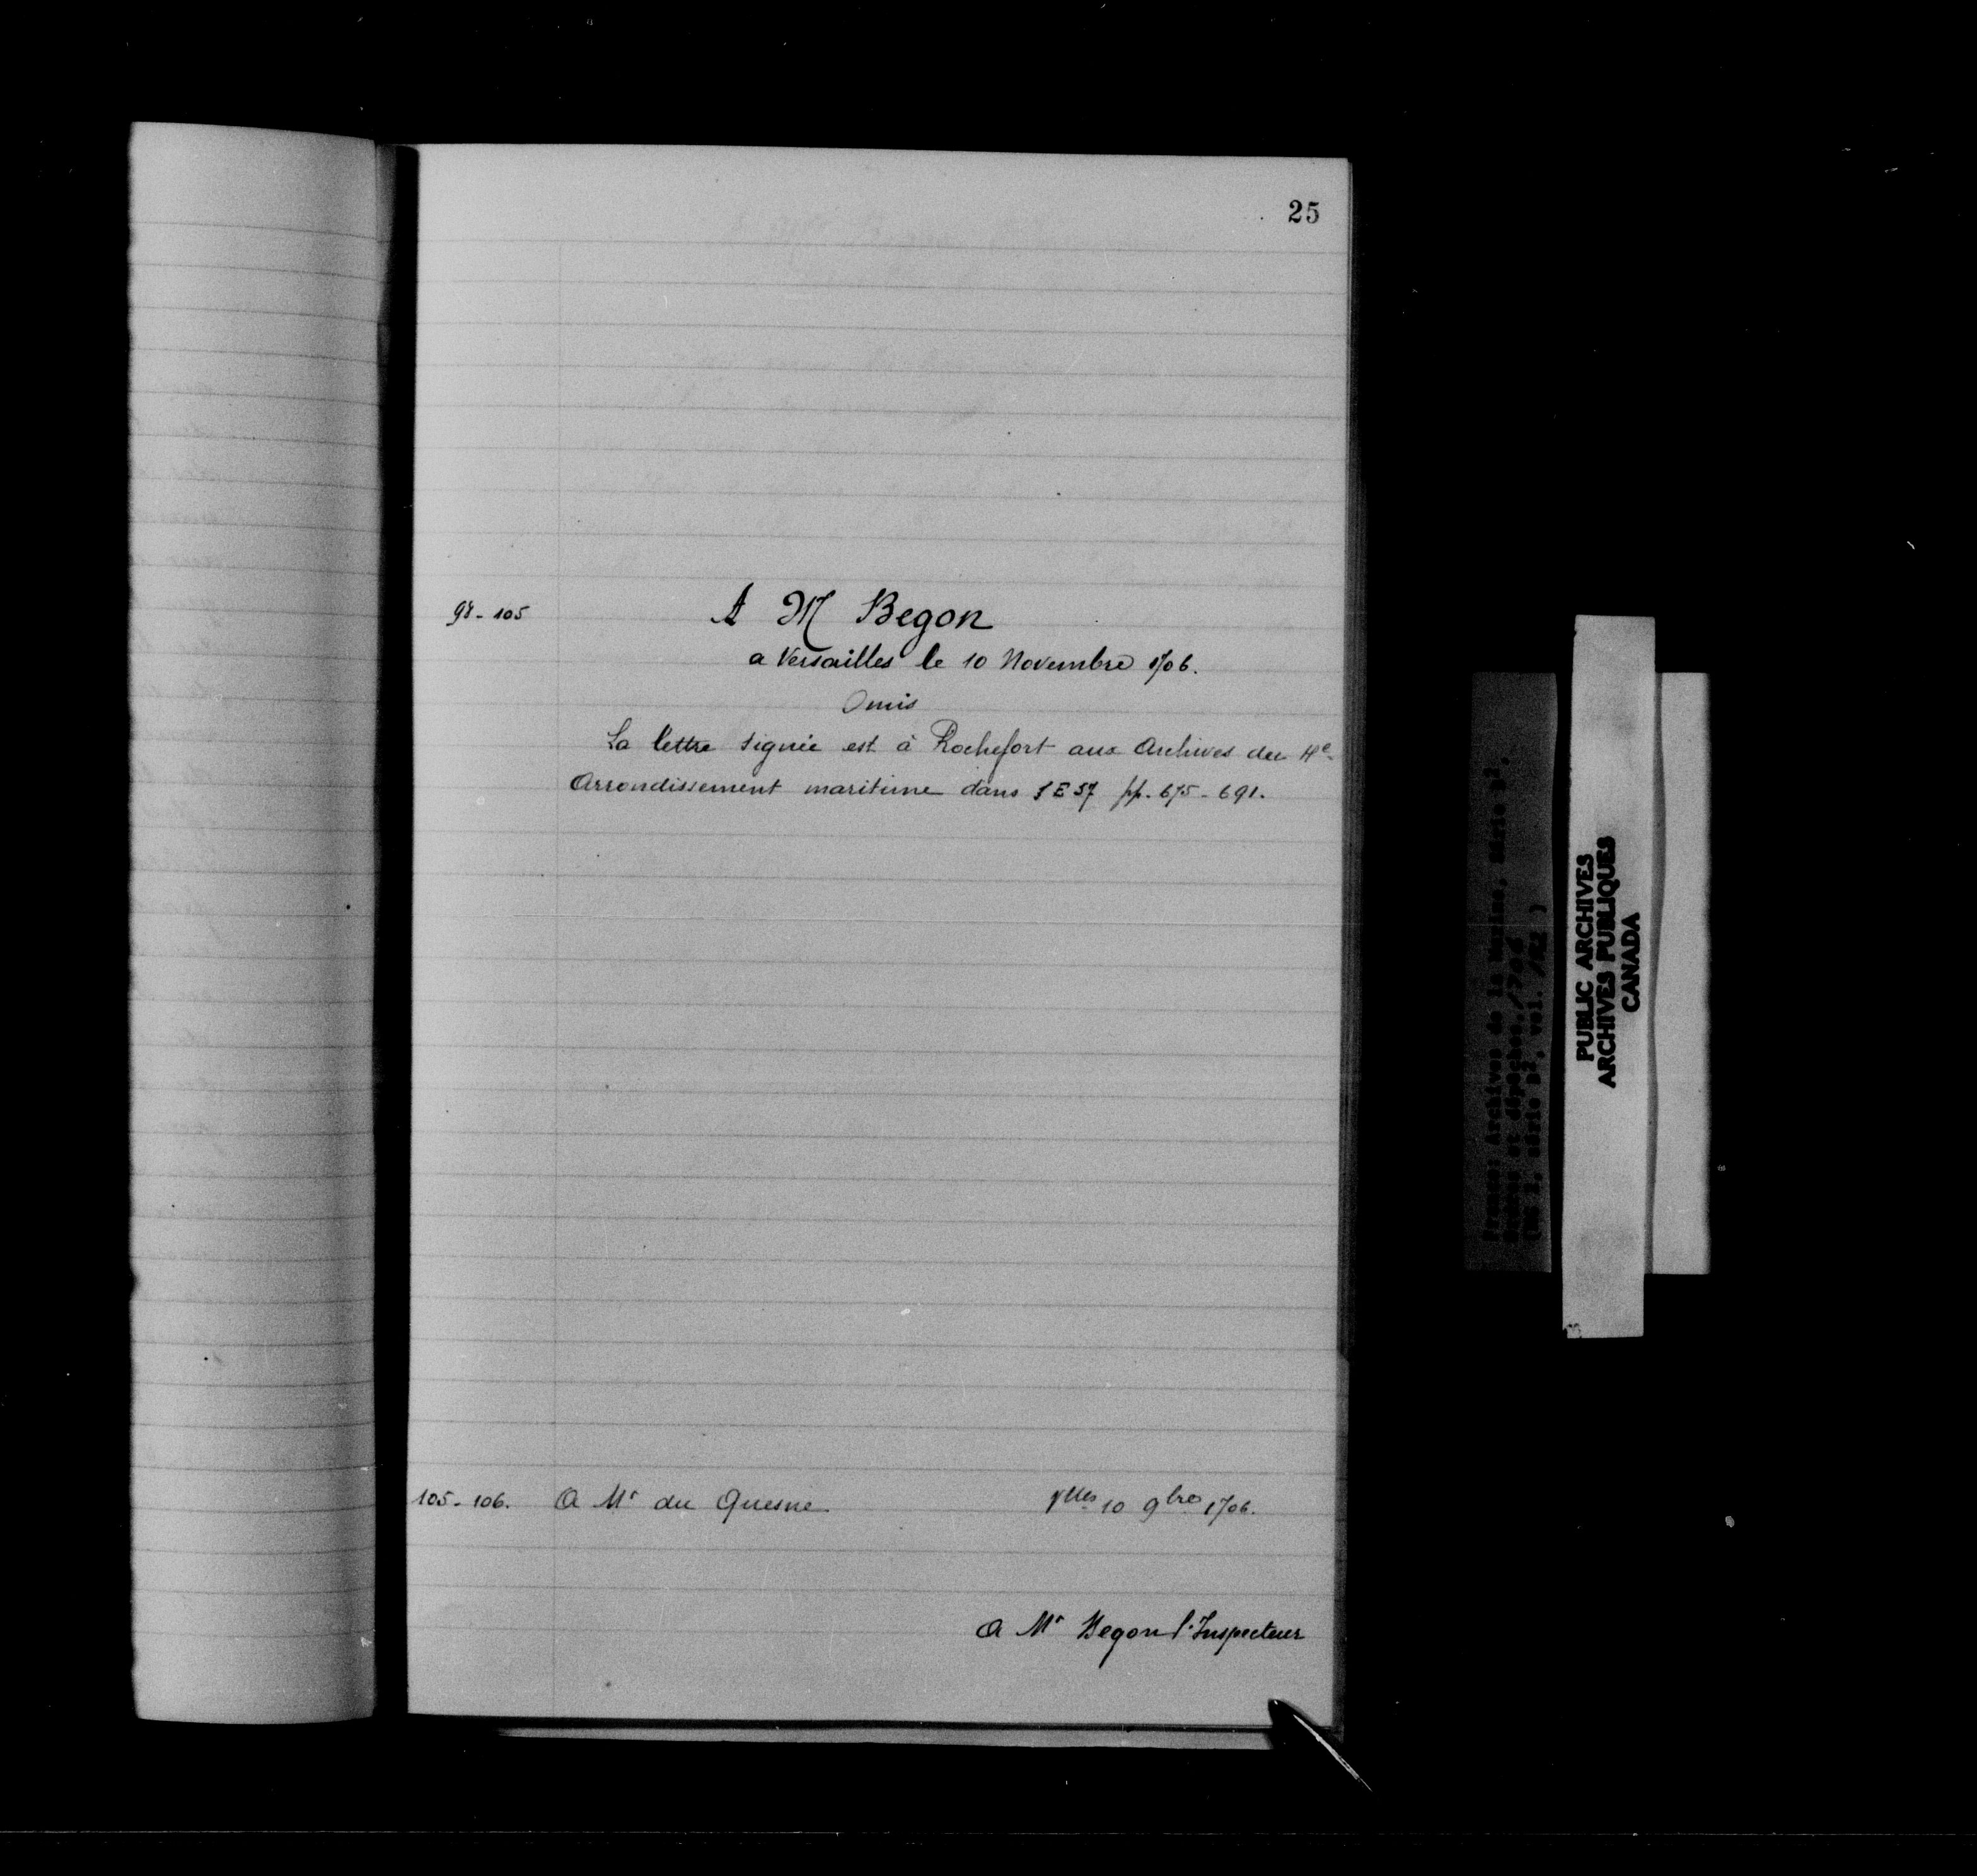 25
98-105 A M Begon
a Versailles le 10 Novembre 1706.
Omis
La lettre signée est à Rochefort aux Archives du 4e
Arrondissement maritime dans 1 E 57 pp. 675-691.
105-106. A Mr du Quesne Vlles 10 9bre 1706.
A Mr Begon l'Inspecteur
France: Archives de la Marine, Série B2.
et dépêches, 1706
série B2, vol. 192 )
PUBLIC ARCHIVES
ARCHIVES PUBLIQUES
CANADA